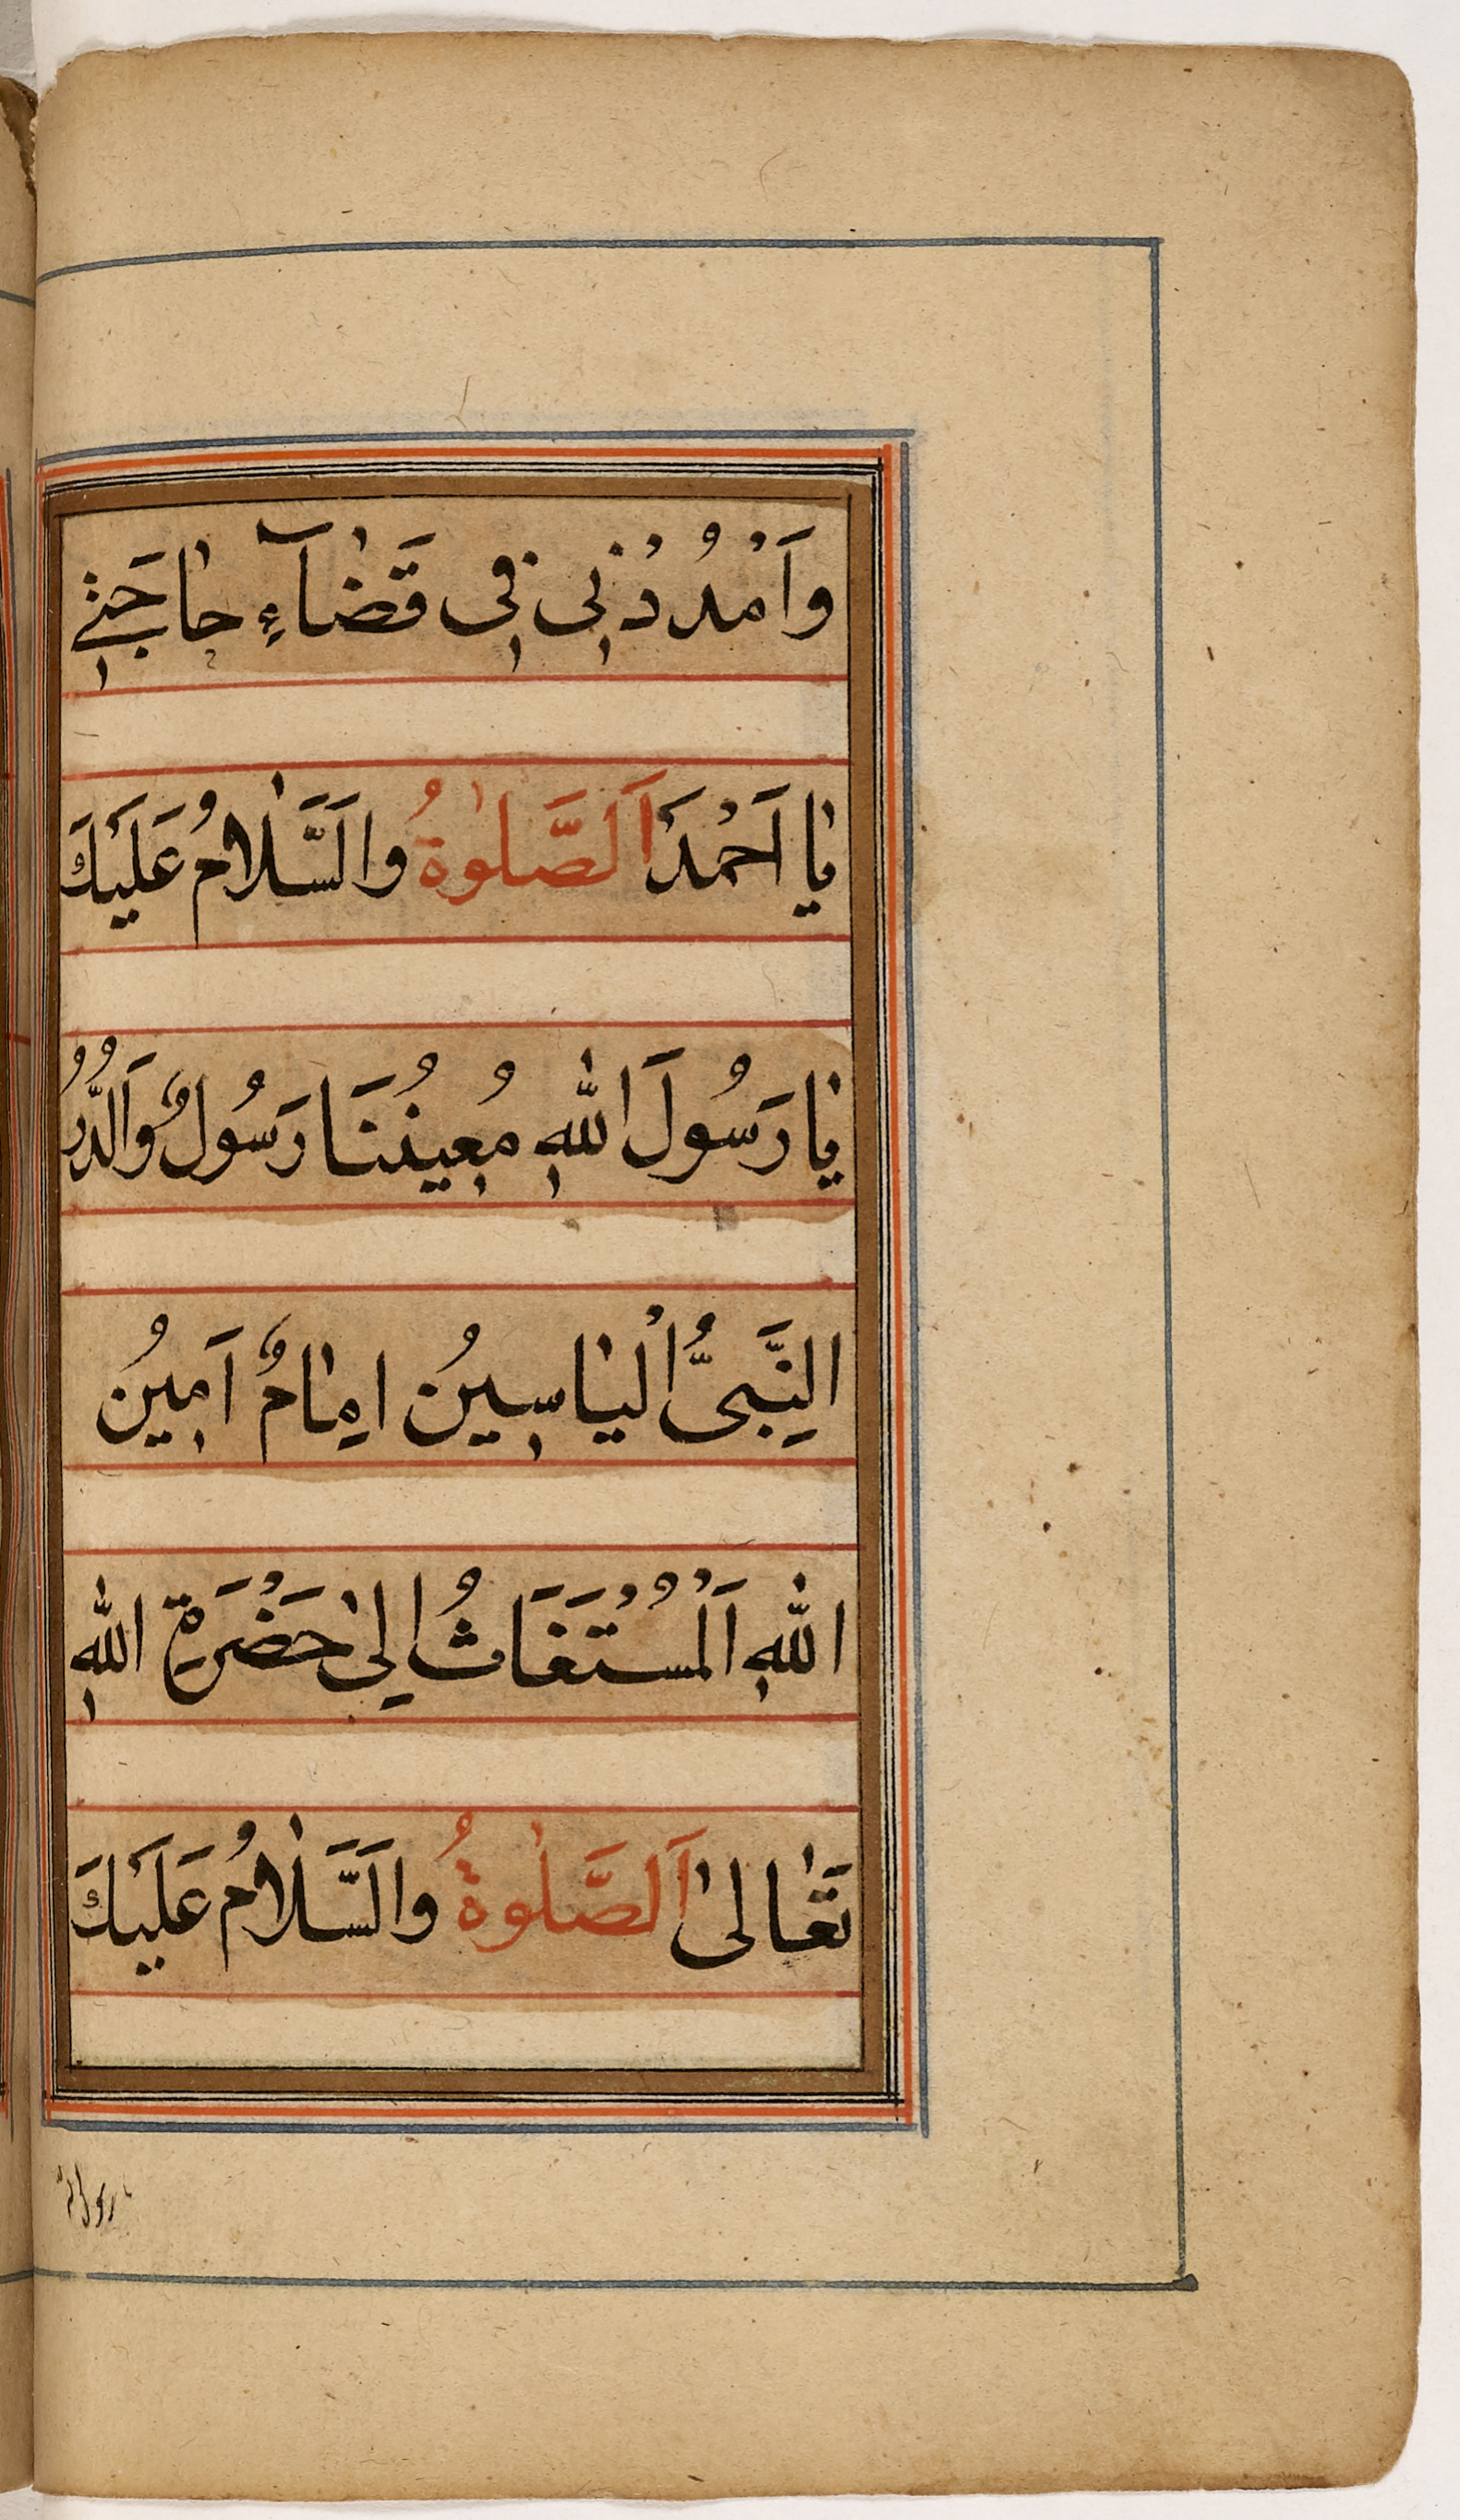 وَاَمْدُدْنِى فِى قَضٰآءِ حٰاجَتِے
يٰا اَحْمَدَ اَلصَّلٰوةُ وَالسَّلٰامُ عَلَيْكَ
يٰا رَسُولَ اللهِ مُعِينُنَا رَسُولٌ وَالدُّرُ
النَّبِىُّ الْيٰاسِينُ اِمٰامٌ اَمِينُ
اللهِ اَلْمُسْتَغَاثُ اِلىٰ حَضْرَةِ اللهِ
تَعٰالىٰ اَلصَّلٰوةُ وَالسَّلٰامُ عَلَيْكَ
يا رسول الله